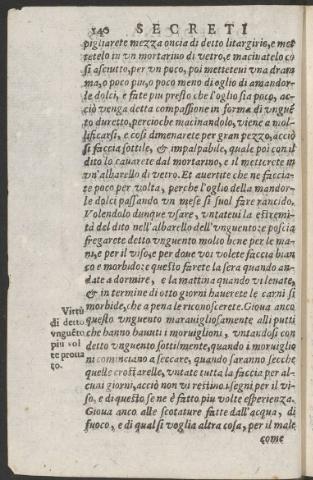 140 SECRETI
pigliarete mezza oncia di detto litargirio, e met
tetelo in vn mortarino di vetro, e macinatelo co
sì asciutto, per vn poco, poi metteteui vna dram
ma, o poco piu, o poco meno di oglio di amandor-
le dolci, e fate piu presto che l'oglio sia poco, ac-
ciò venga detta compassione in forma di vngue
to duretto, percioche macinandolo, viene a mol-
lificarsi, e così dimenarete per gran pezzo, acciò
si faccia sottile, & impalpabile, quale poi con il
dito lo cauarete dal mortarino, e il metterete in
vn'albarello di vetro. Et auertite che ne faccia-
te poco per volta, perche l'oglio della mandor-
le dolci passando vn mese si suol fare rancido.
Volendolo dunque vsare, vntateui la estremi-
tà del dito nell'albarello dell'vnguento: e poscia
fregarete detto vnguento molto bene per le ma-
ni, e per il viso, e per doue voi volete faccia bian
co e morbido: e questo farete la sera quando an-
date a dormire, e la mattina quando vi leuate,
& in termine di otto giorni hauerete le carni sì
morbide, che a pena le riconoscerete. Gioua anco
Virtù
di detto
vnguẽto
piu vol
te prouа
to.
questo vnguento marauigliosamente alli putti
che hanno hauuti i moruiglioni, vntandosi con
detto vnguento sottilmente, quando i moruiglio
ni cominciano a seccare, quando saranno secche
quelle crostarelle, vntate tutta la faccia per al-
cuni giorni, acciò non vi restino i segni per il vi-
so, e di questo se ne è fatto piu volte esperienza.
Gioua anco alle scotature fatte dall'acqua, di
fuoco, e di qual si voglia altra cosa, per il male
come